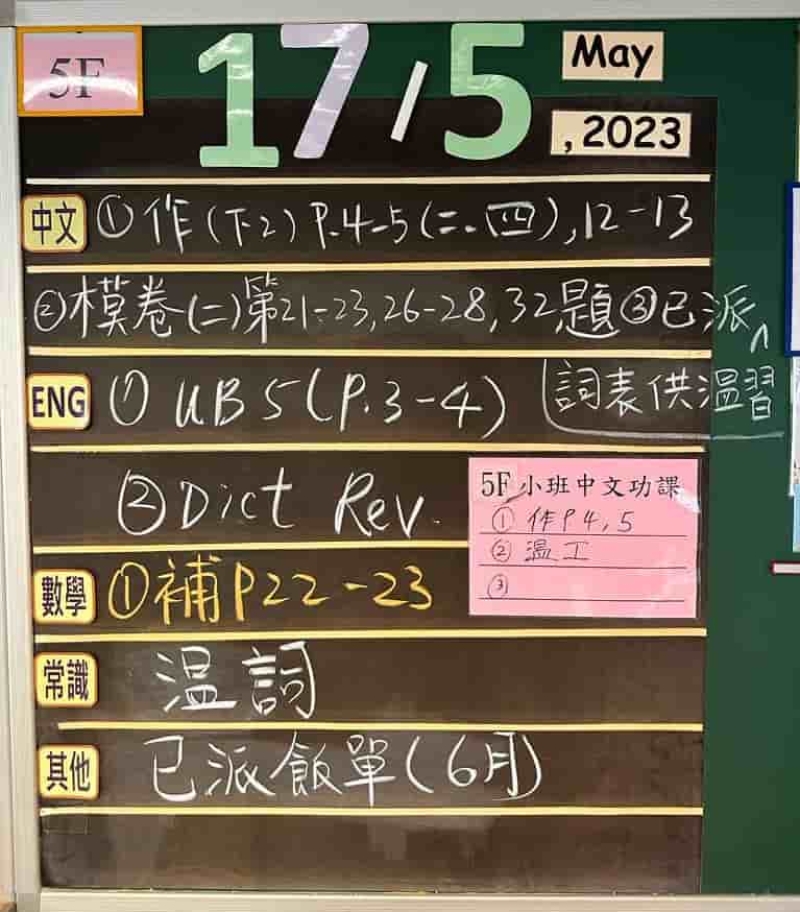 5F
17/5
May
, 2023
中文 ①作(下2) P.4-5(二、四), 12-13
②模卷(二)第21-23, 26-28, 32題 ③已派
詞表供溫習
ENG ① UB 5 (P.3-4)
② Dict Rev.
5F 小班中文功課
① 作P4, 5
② 溫工
③
數學 ①補P22-23
常識 溫詞
其他 已派飯單(6月)